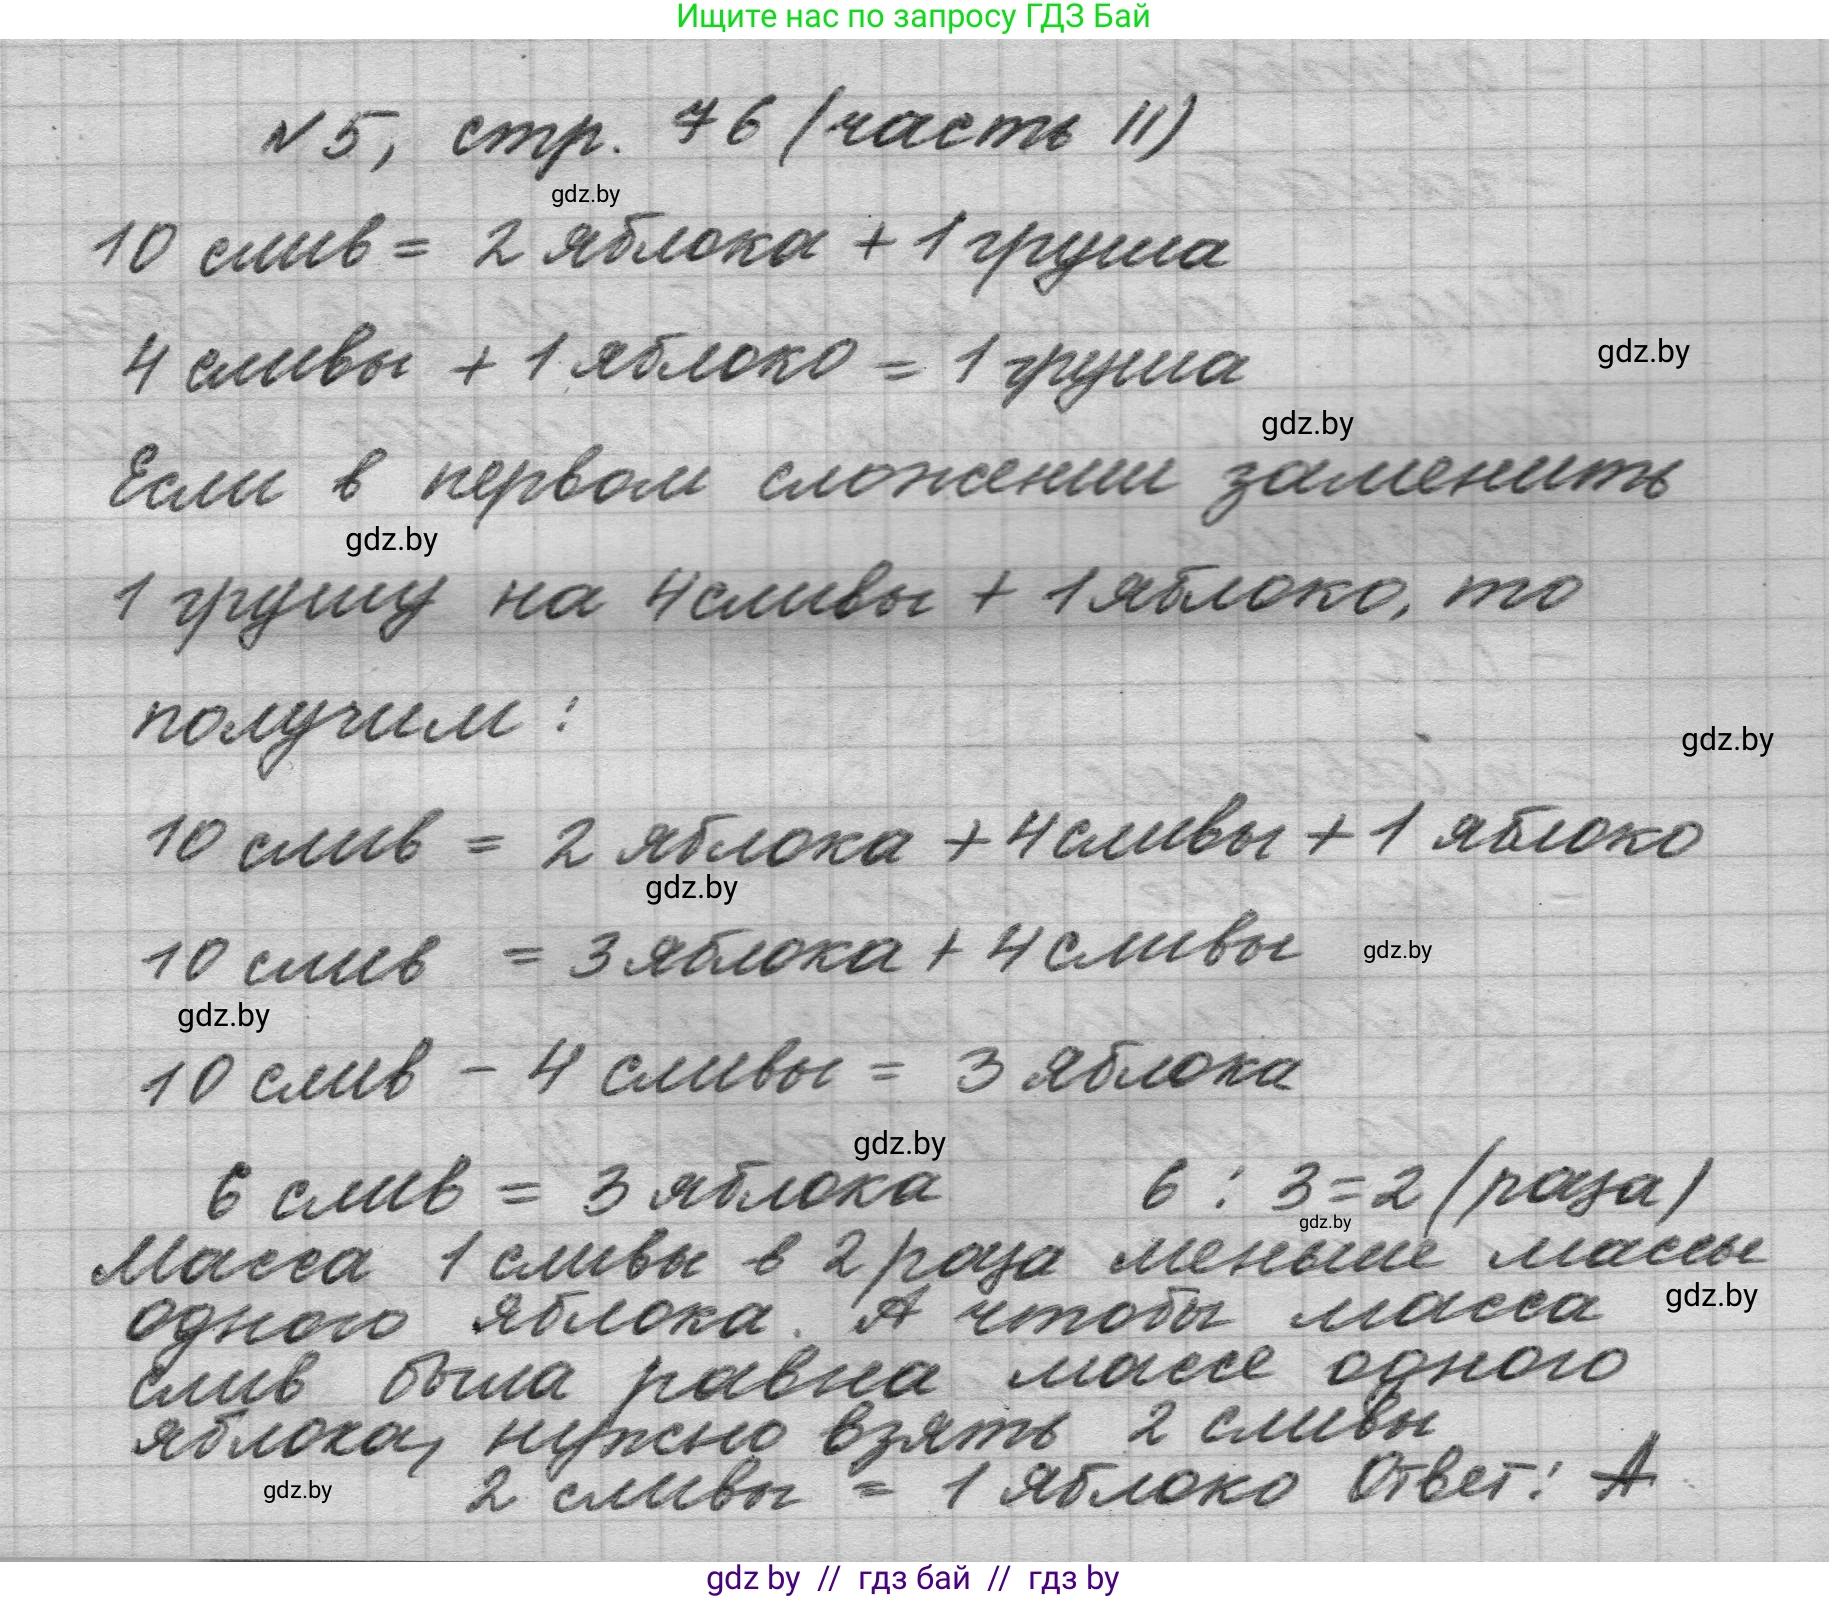 Ищите нас по запросу ГДЗ Бай
№5, стр. 76 (часть II)
gdz.by
10 слив = 2 яблока + 1 груша
4 сливы + 1 яблоко = 1 груша
gdz.by
gdz.by
Если в первом сложении заменить
gdz.by
1 грушу на 4 сливы + 1 яблоко, то
получим:
gdz.by
10 слив = 2 яблока + 4 сливы + 1 яблоко
gdz.by
10 слив = 3 яблока + 4 сливы
gdz.by
gdz.by
10 слив - 4 сливы = 3 яблока
gdz.by
6 слив = 3 яблока 6 : 3 = 2 (раза)
gdz.by
Масса 1 сливы в 2 раза меньше массы
gdz.by
одного яблока. А чтобы масса
слив была равна массе одного
яблока, нужно взять 2 сливы
gdz.by
2 сливы = 1 яблоко Ответ: А
gdz by // гдз бай // гдз by